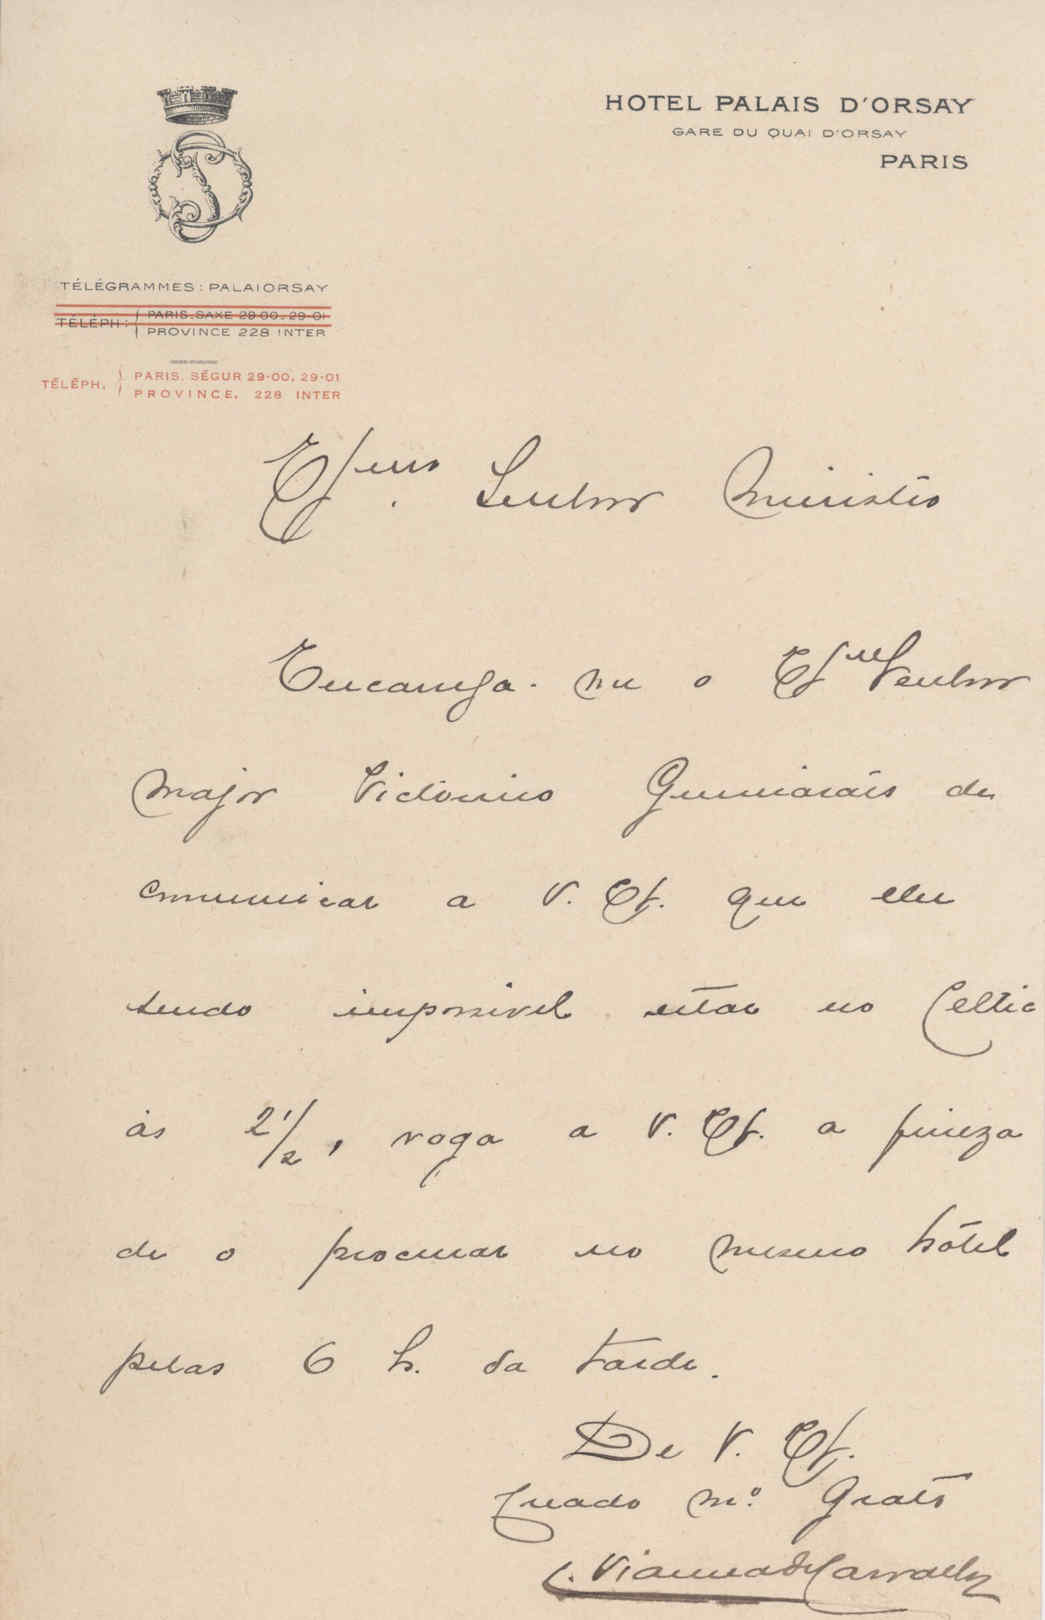 HOTEL PALAIS D'ORSAY
GARE DU QUAI D'ORSAY
PARIS
TÉLÉGRAMMES: PALAIORSAY
TÉLÉPH: PARIS. SAXE 29-00. 29-01
PROVINCE 228 INTER
TÉLÉPH. PARIS. SÉGUR 29-00, 29-01
PROVINCE, 228 INTER
Exmo Senhor Ministro
Encarrega-me o Exm Senhor
Major Victorino Guimarães de
comunicar a V. Ex. que elle
sendo impossivel estar no Celtic
ás 2 1/2, roga a V. Ex. a fineza
de o procurar no mesmo hôtel
pelas 6 h. da tarde.
De V. Ex.
Creado mº. Grato
C. Vianna de Carvalho